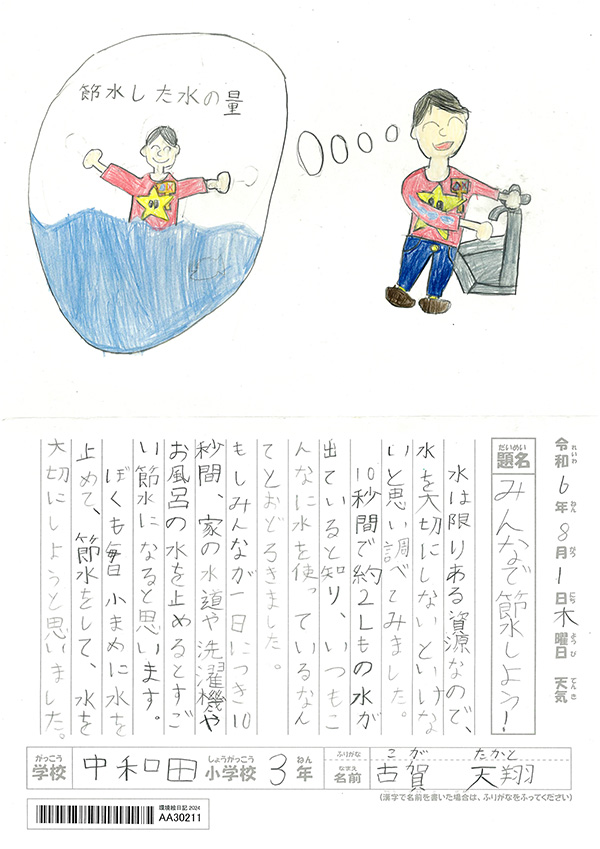 節水した水の量
れいわ ねん がつ にち ようび てんき
令和6年8月1日木曜日 天気
だいめい
題名 みんなで節水しよう!
水は限りある資源なので、
水を大切にしないといけな
いと思い調べてみました。
10秒間で約2Lもの水が
出ていると知り、いつもこ
んなに水を使っているなん
てとおどろきました。
もしみんなが一日につき10
秒間、家の水道や洗濯機や
お風呂の水を止めるとすご
い節水になると思います。
ぼくも毎日小まめに水を
止めて、節水をして、水を
大切にしようと思いました。
がっこう しょうがっこう ねん
学校 中和田小学校 3年
ふりがな こが たかと
なまえ
名前 古賀 天翔
(漢字で名前を書いた場合は、ふりがなをふってください)
環境絵日記2024
AA30211